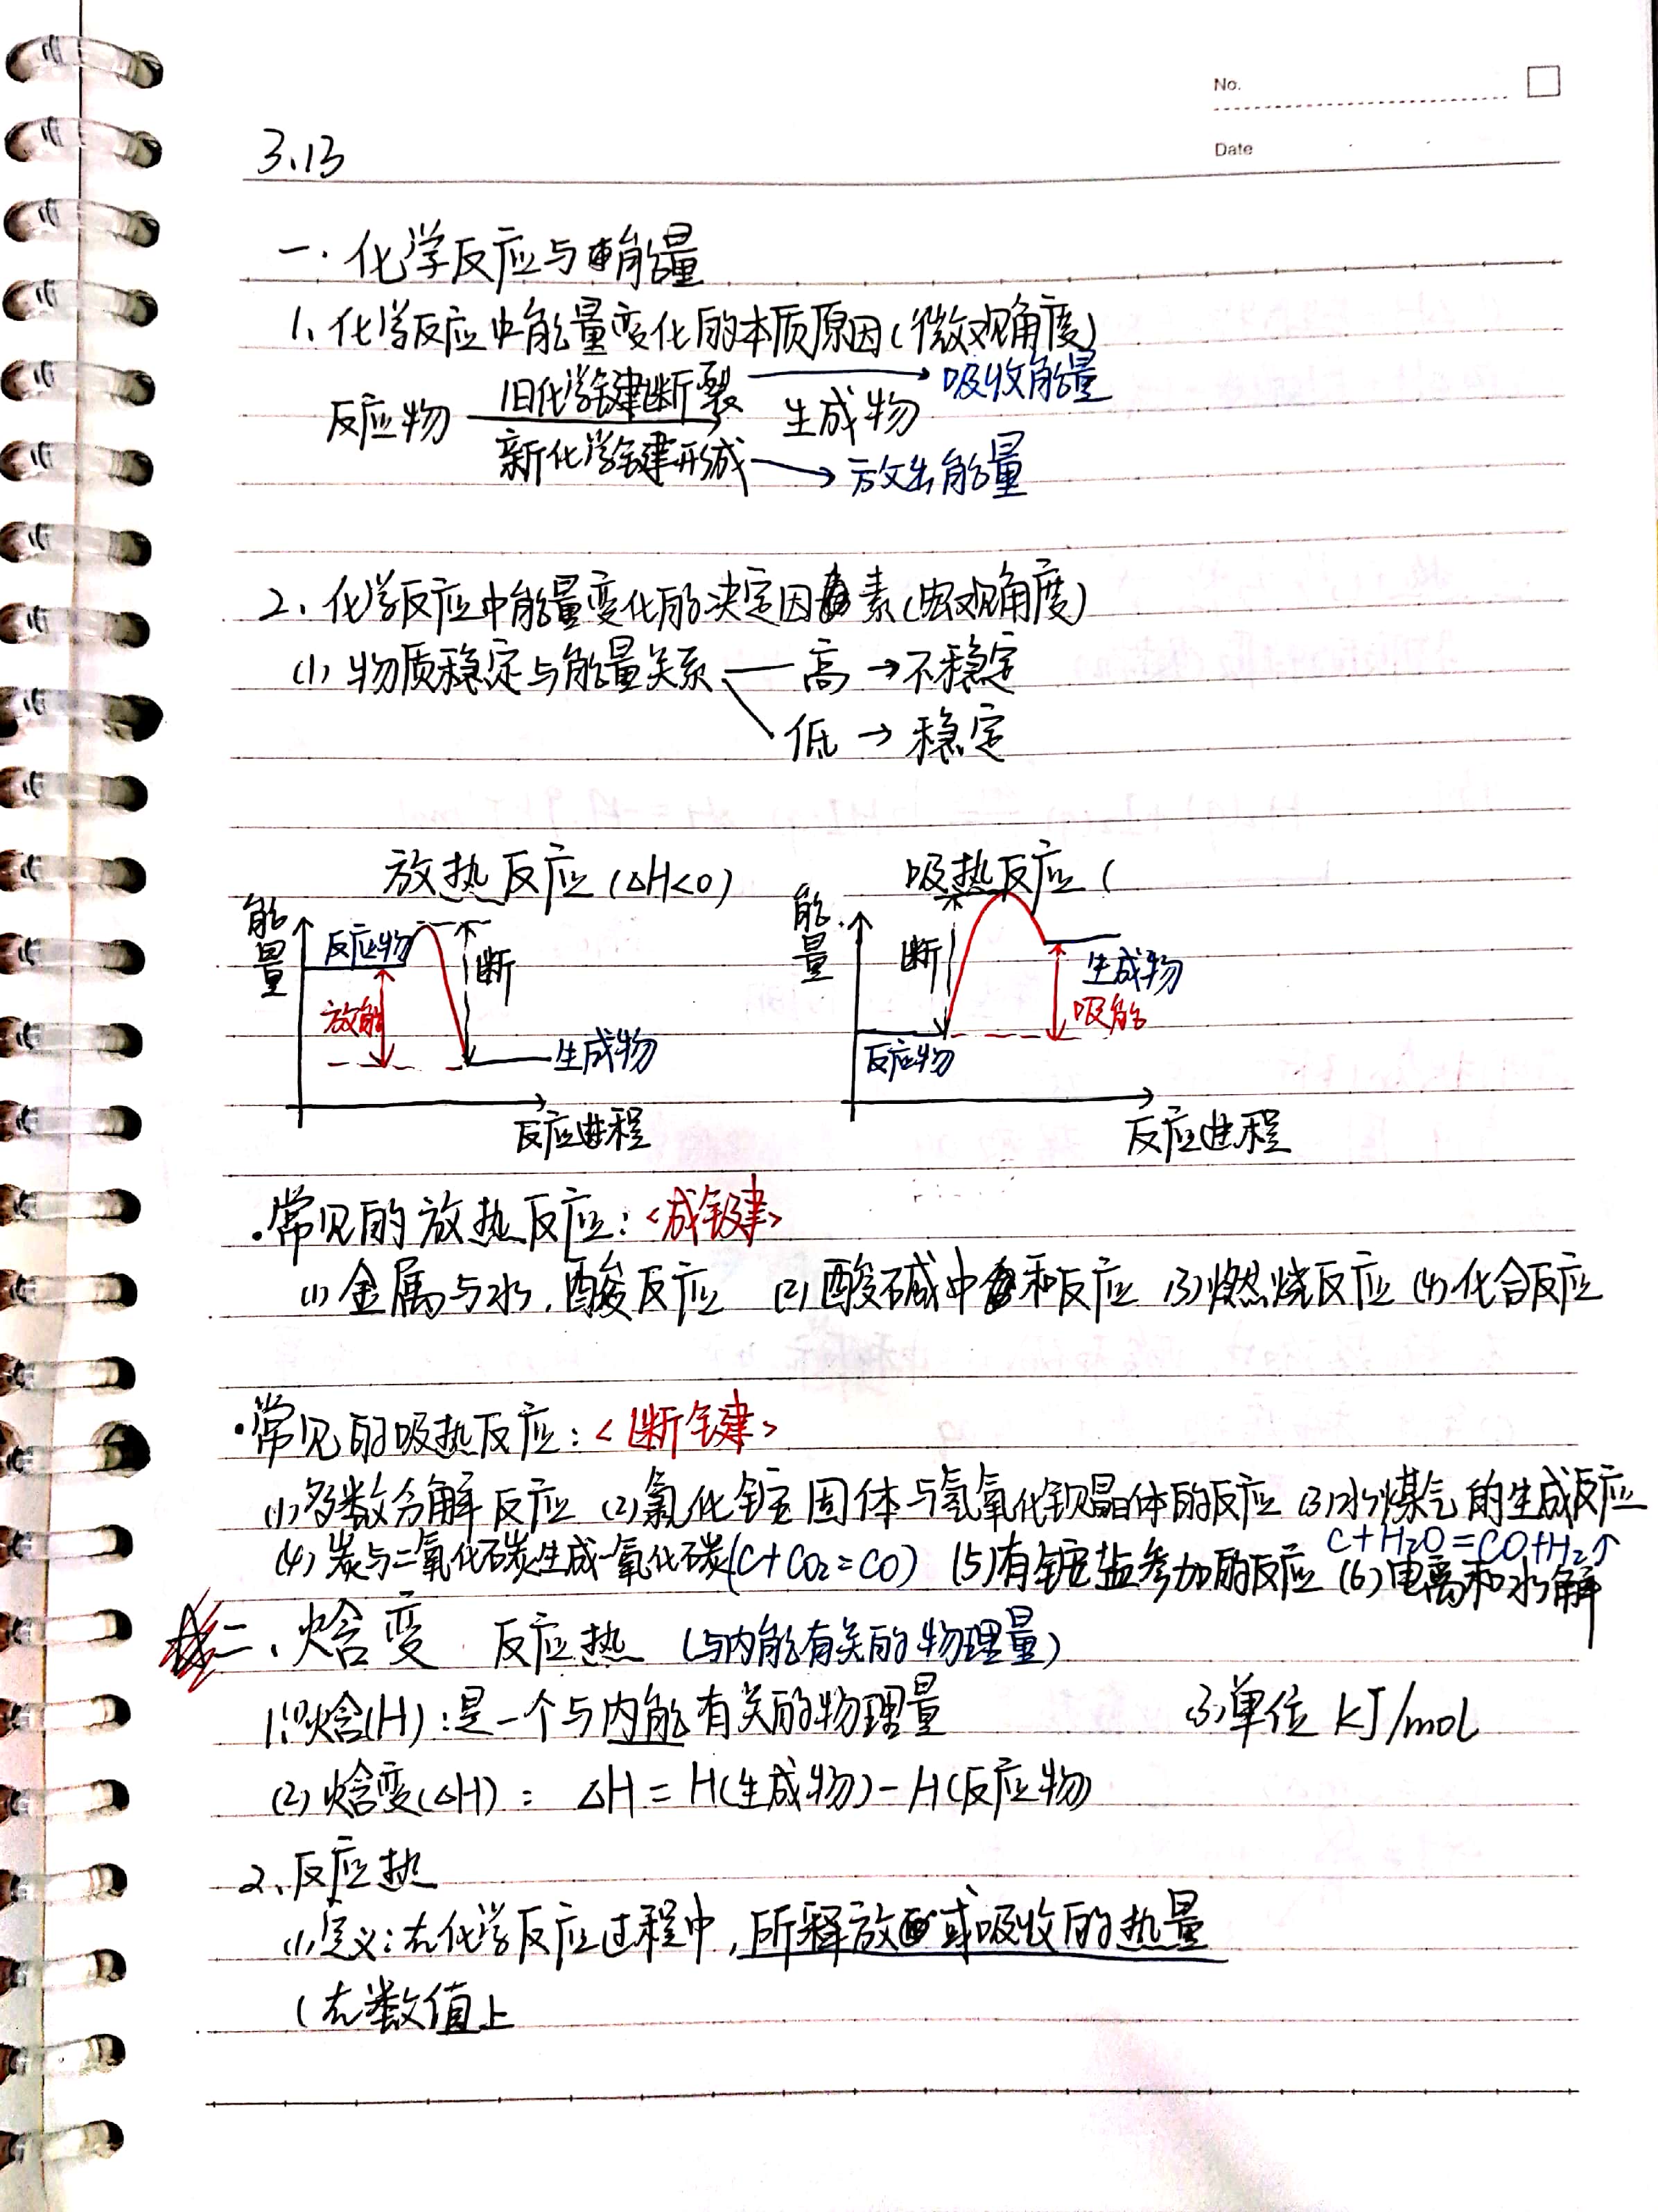 No.
Date
3.13
一.化学反应与能量
1、化学反应中能量变化的本质原因(微观角度)
旧化学键断裂 → 吸收能量
反应物 → 生成物
新化学键形成 → 放出能量
2、化学反应中能量变化的决定因素(宏观角度)
(1) 物质稳定与能量关系 — 高 → 不稳定
低 → 稳定
放热反应(△H<0)
吸热反应(
能量
反应物
断
放能
生成物
反应进程
能量
断
生成物
吸能
反应物
反应进程
·常见的放热反应:<成键>
(1)金属与水,酸反应 (2)酸碱中和反应 (3)燃烧反应 (4)化合反应
·常见的吸热反应:<断键>
(1)多数分解反应 (2)氯化铵固体与氢氧化钡晶体的反应 (3)水煤气的生成反应
C+H2O=CO+H2↑
(4)炭与二氧化碳生成一氧化碳(C+CO2=CO) (5)有铵盐参加的反应 (6)电离和水解
☆二、焓变 反应热 (与内能有关的物理量)
1.(1)焓(H):是一个与内能有关的物理量 (3)单位 kJ/mol
(2)焓变(△H): △H=H(生成物)-H(反应物)
2、反应热
(1)定义:在化学反应过程中,所释放或吸收的热量
(在数值上